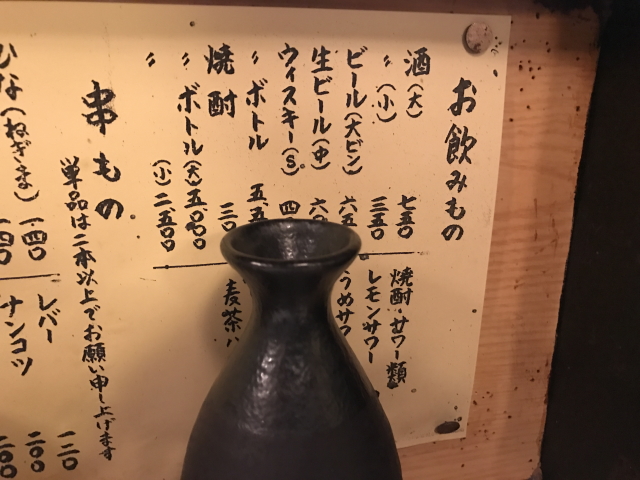 お飲みもの
酒(大) 七五〇
〃(小) 三五〇
ビール(大ビン) 六五
生ビール(中) 六
ウィスキー(S) 四
〃ボトル 五五
焼酎 三〇
〃ボトル(大) 五〇〇〇
〃 (小) 二五〇〇
焼酎・サワー類
レモンサワー
うめサワ
麦茶ハ
串もの
単品は二本以上でお願い申し上げます
ひな(ねぎま) 一四〇
一四〇
レバー 一二〇
ナンコツ 二〇〇
二〇〇